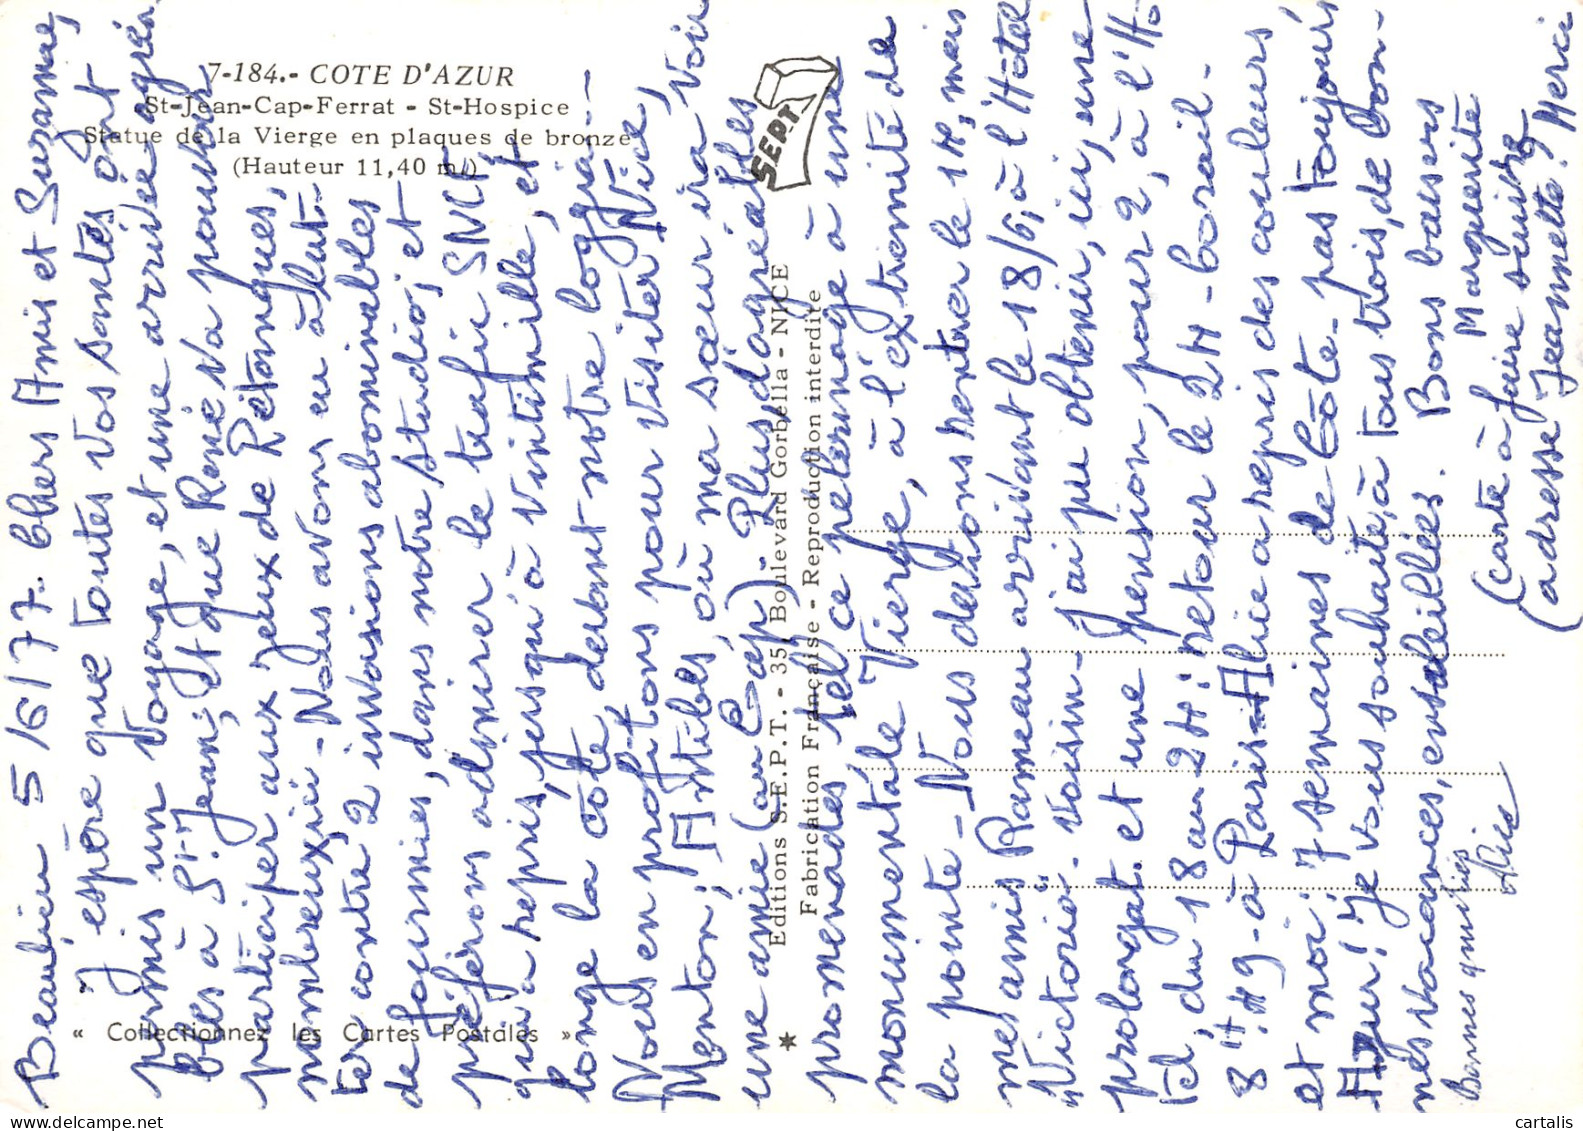 7-184.- COTE D'AZUR
St-Jean-Cap-Ferrat - St-Hospice
Statue de la Vierge en plaques de bronze
(Hauteur 11,40 m.)
SEPT
Editions S.E.P.T. - 35, Boulevard Gorbella - NICE
Fabrication Française - Reproduction interdite
« Collectionnez les Cartes Postales »
Beaulieu 5/6/77. Chers Amis et Suzanne,
J'espère que toutes vos santés ont
permis un voyage, et une arrivée agréa-
bles à St. Jean; et que René va pouvoir
participer aux jeux de Pétanques,
nombreux ici - Nous avons eu à lut-
ter contre 2 invasions abominables
de fourmies, dans notre studio; et
préférons admirer le trafic SNCF,
qui a repris, jusqu'à Vintimille, et
longe la côte, devant notre loggia -
Nous en profitons pour visiter Nice,
Menton; Antibes, où ma sœur ira voir
une amie (au Cap). Plus d'agréables
promenades tel ce pélerinage à une
monumentale Vierge, à l'extremité de
la pointe - Nous devions rentrer le 14, mais
mes amis Rameau arrivant le 18/6, à l'Hotel
"Victoria" voisin - j'ai pu obtenir, ici, une
prolongat. et une pension, pour 2, à l'Ho-
tel, du 18 au 24: retour le 24 - borail -
8 H 49 - à Paris - Alice a repris des couleurs
et moi: 7 semaines de Côte - pas toujours
Azur! Je vous souhaite, à tous trois, de bon-
nes vacances, ensoleillées. Bons baisers
Marguerite
bonnes amitiés
Alice
(carte à faire suivre
(adresse Jeannette? Merci